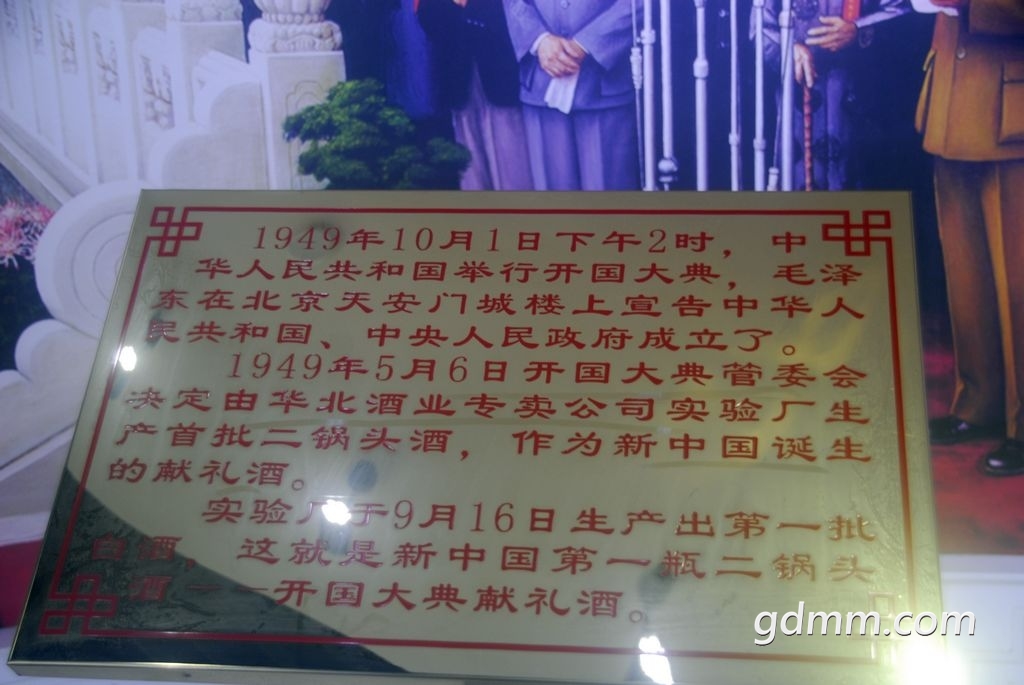 1949年10月1日下午2时，中
华人民共和国举行开国大典，毛泽
东在北京天安门城楼上宣告中华人
民共和国、中央人民政府成立了。
1949年5月6日开国大典管委会
决定由华北酒业专卖公司实验厂生
产首批二锅头酒，作为新中国诞生
的献礼酒。
实验厂于9月16日生产出第一批
白酒，这就是新中国第一瓶二锅头
酒--开国大典献礼酒。
gdmm.com